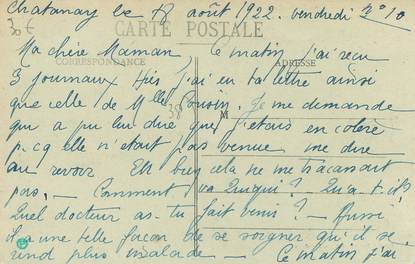 Chatanay le 18 août 1922. vendredi 3º 10
30 €
CARTE POSTALE
Ma chère Maman Ce matin j'ai reçu
CORRESPONDANCE
ADRESSE
3 journaux Hier j'ai eu ta lettre ainsi
que celle de Mlle Je me demande
38
M
qui a pu lui dire que j'étais en colère
p. cq elle n'était pas venue me dire
au revoir Eh bien cela ne me tracassait
pas. — Comment va Quiqui? Qu'a-t-il?
Quel docteur as-tu fait venir? — Aussi
il a une telle façon de se soigner qu'il se
rend plus malade — Ce matin j'ai